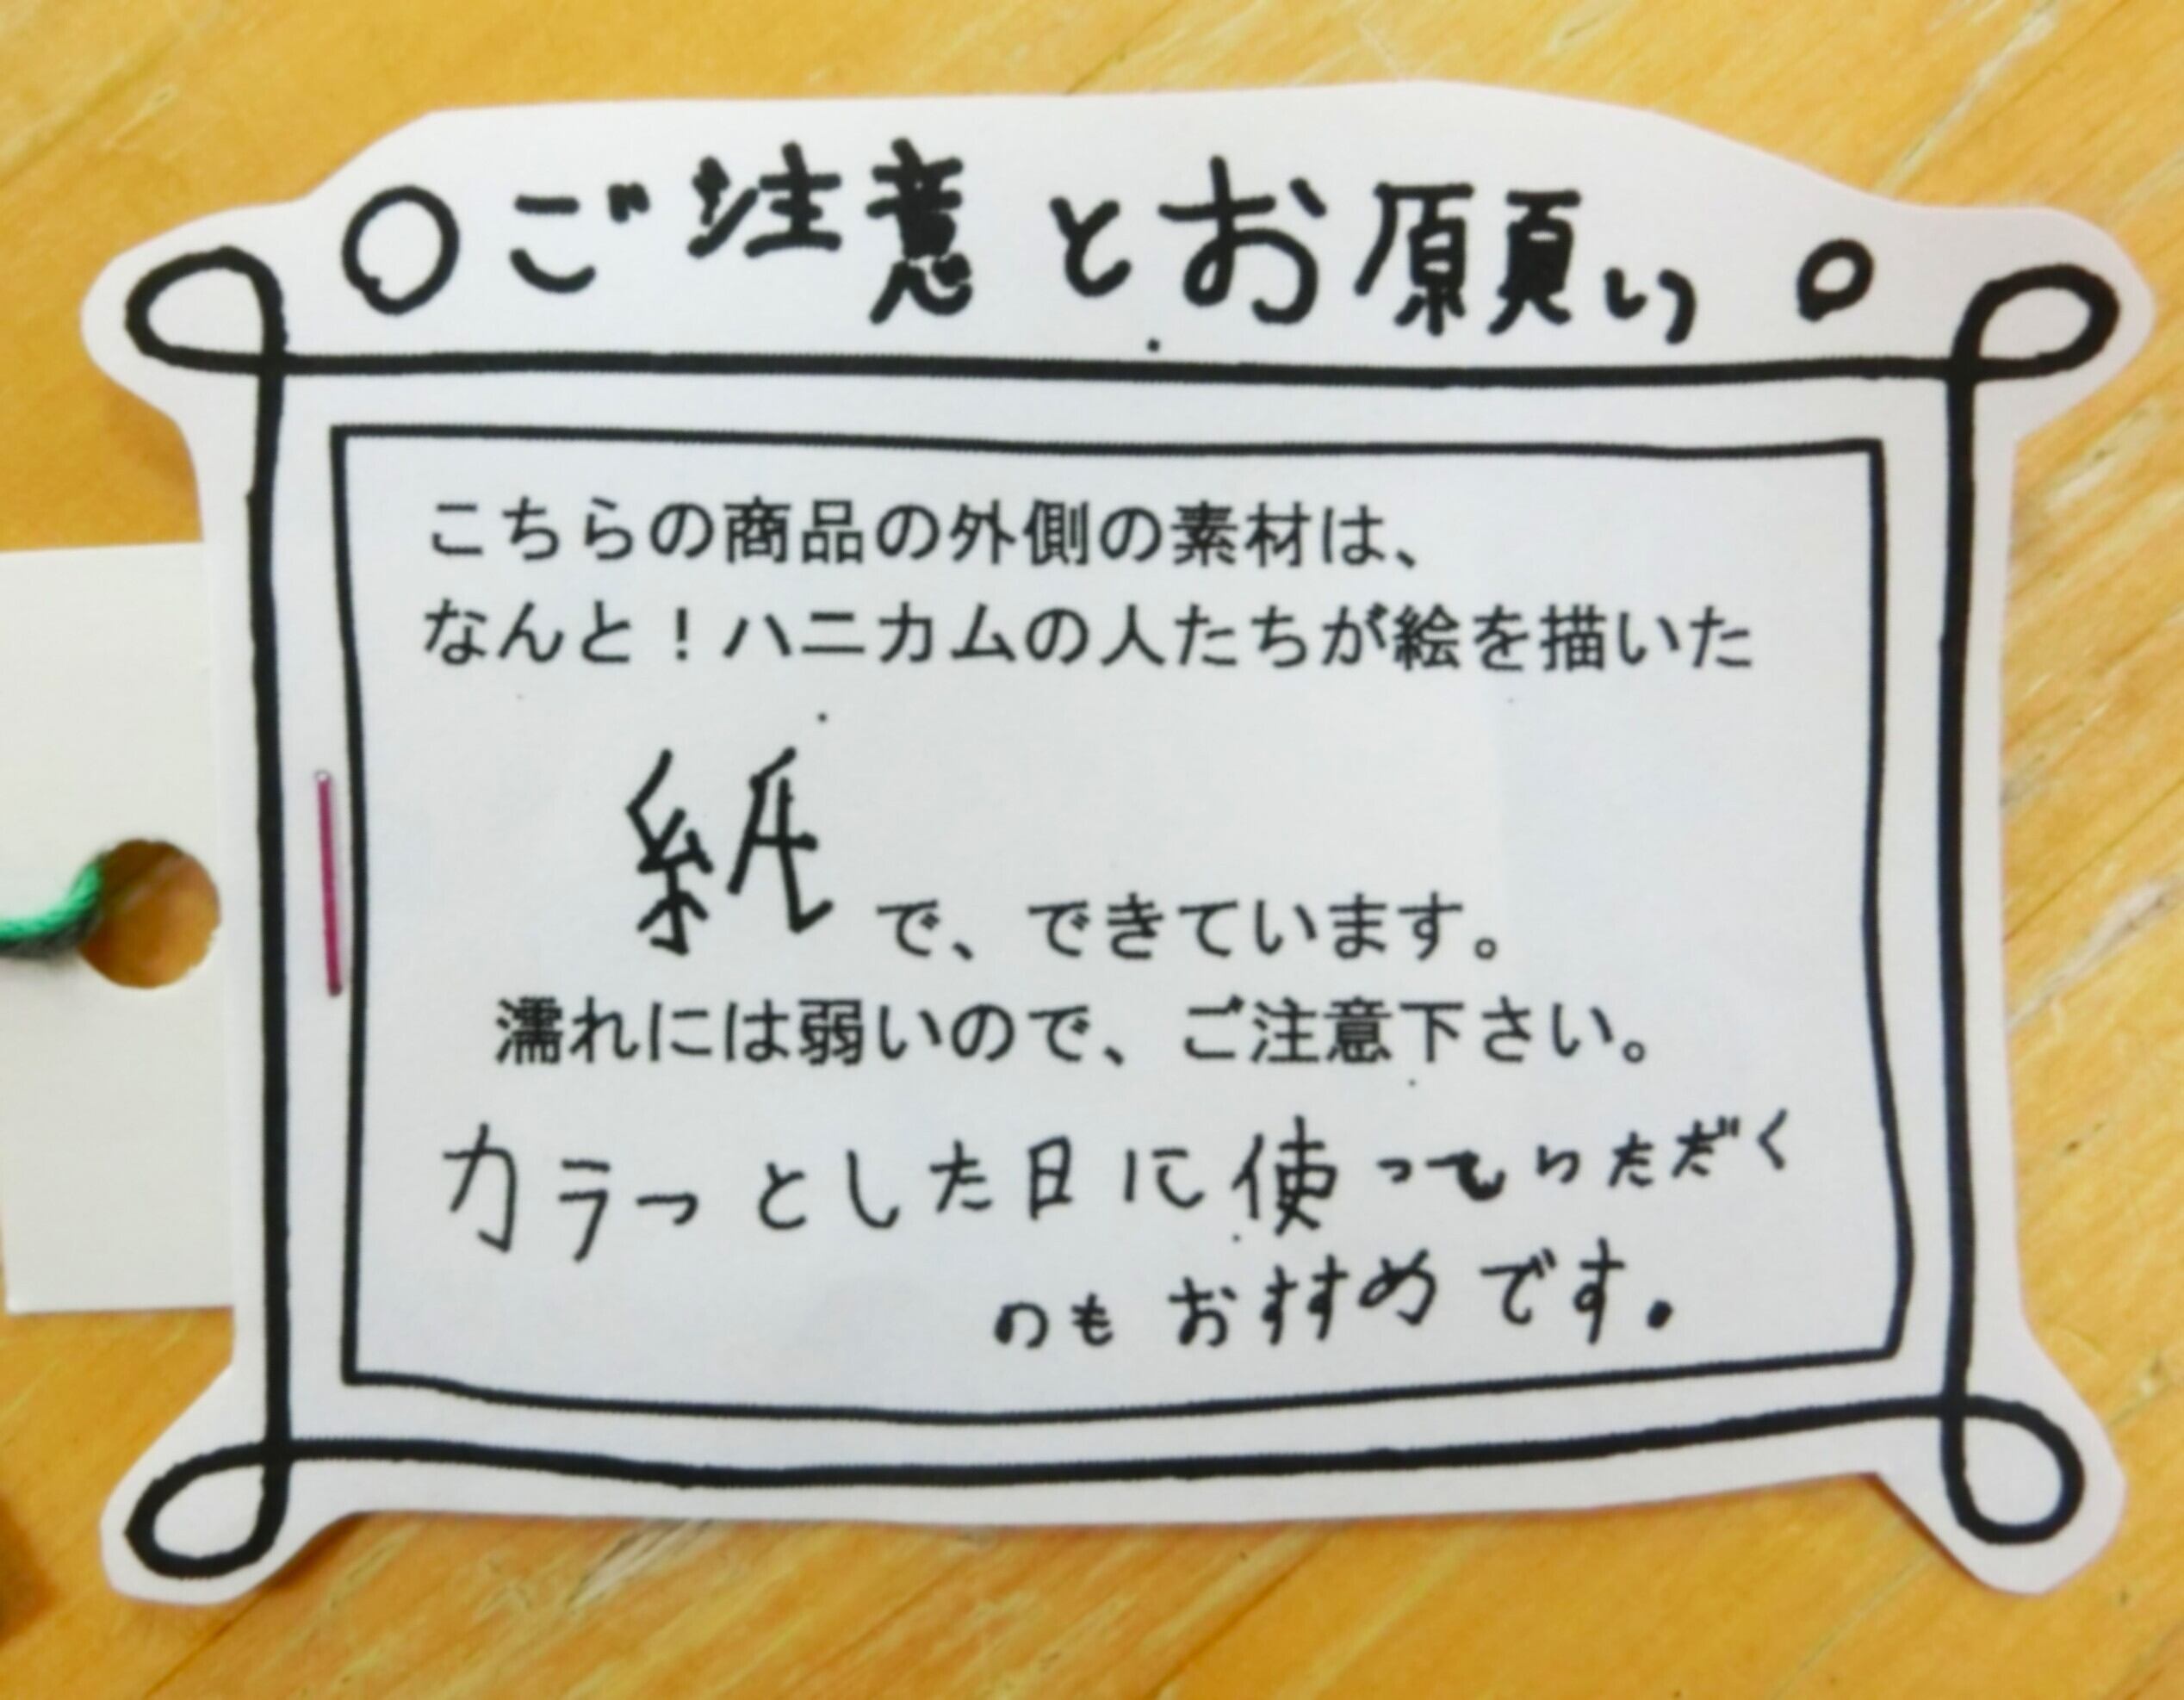 ○ご注意とお願い○
こちらの商品の外側の素材は、
なんと！ハニカムの人たちが絵を描いた
紙で、できています。
濡れには弱いので、ご注意下さい。
カラっとした日に使っていただく
のもおすすめです。